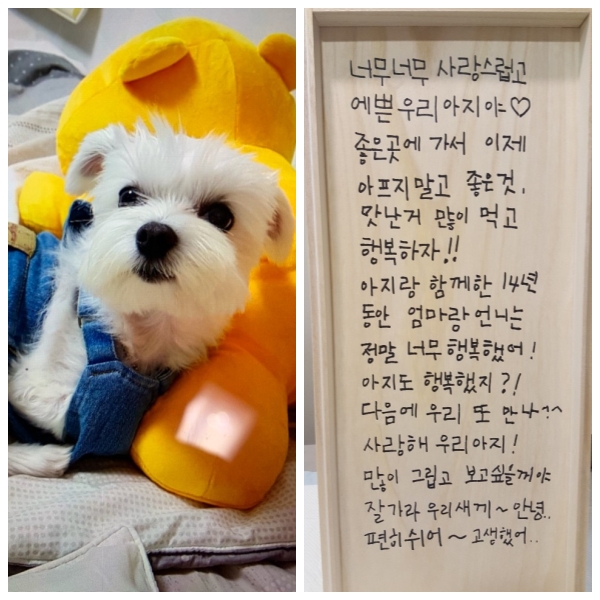 너무너무 사랑스럽고
예쁜 우리아지야♡
좋은곳에 가서 이제
아프지말고 좋은것,
맛난거 많이 먹고
행복하자!!
아지랑 함께한 14년
동안 엄마랑언니는
정말 너무행복했어!
아지도 행복했지?!
다음에 우리 또 만나^^
사랑해 우리아지!
많이 그립고 보고싶을꺼야
잘가라 우리새끼~ 안녕..
편히쉬어~ 고생했어..